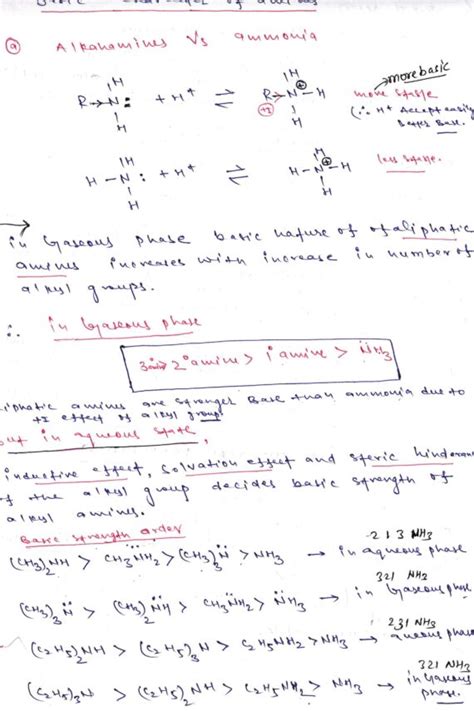 Basic character of amines
(a) Alkanamines Vs ammonia
H
R→N: + H⁺ ⇌ R→N⊕—H
H
(+I)
→more basic
more stable
(∴ H⁺ Accept easily
Better Base.
H
H—N: + H⁺ ⇌ H—N⊕—H
H
less stable.
in Gaseous phase basic nature of of aliphatic
amines increases with increase in number of
alkyl groups.
∴ in Gaseous phase
3amine> 2° amine > 1° amine > N̈H₃
liphatic amines are stronger Base than ammonia due to
+I effect of alkyl group
but in aqueous state,
inductive effect, solvation effect and steric hinderanc
of the alkyl group decides basic strength of
alkyl amines.
Basic strength order
(CH₃)₂N̈H > CH₃N̈H₂ > (CH₃)₃N̈ > NH₃ → in aqueous phase
213 NH₃
(CH₃)₃N̈ > (CH₃)₂N̈H > CH₃N̈H₂ > N̈H₃ → in Gaseous phase
321 NH₃
(C₂H₅)₂NH > (C₂H₅)₃N > C₂H₅NH₂ > NH₃ → aqueous phase
231 NH₃
(C₂H₅)₃N > (C₂H₅)₂NH > C₂H₅NH₂ > NH₃ → in Gaseous phase.
321 NH₃